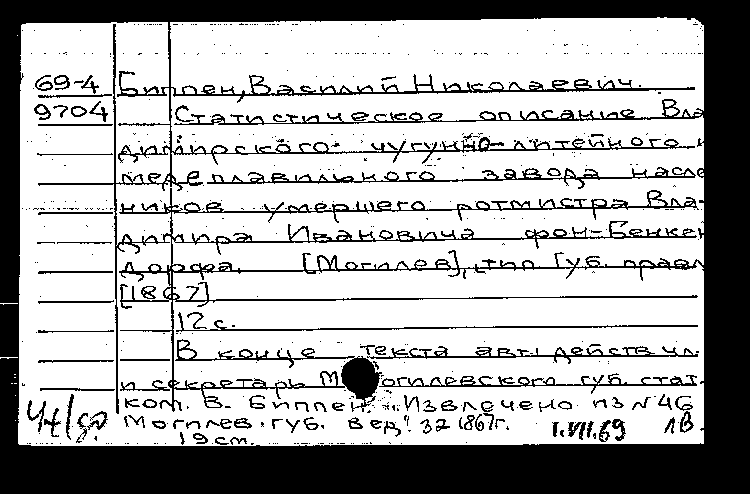 69-4 Биппен, Василий Николаевич.
9704 Статистическое описание Вла
димирского чугунно-литейного и
медеплавильного завода насле
ников умершего ротмистра Вла-
димира Ивановича фон-Бенкен
дорфа. [Могилев], тип Губ. правл
[1867]
12 с.
В конце текста авт: действ чл.
и секретарь Могилевского губ. стат.
ком. В. Биппен. "Извлечено из N 46
Могилев. губ. вед". 32 1867г.
19 см. 1.VII.69 ЛВ.